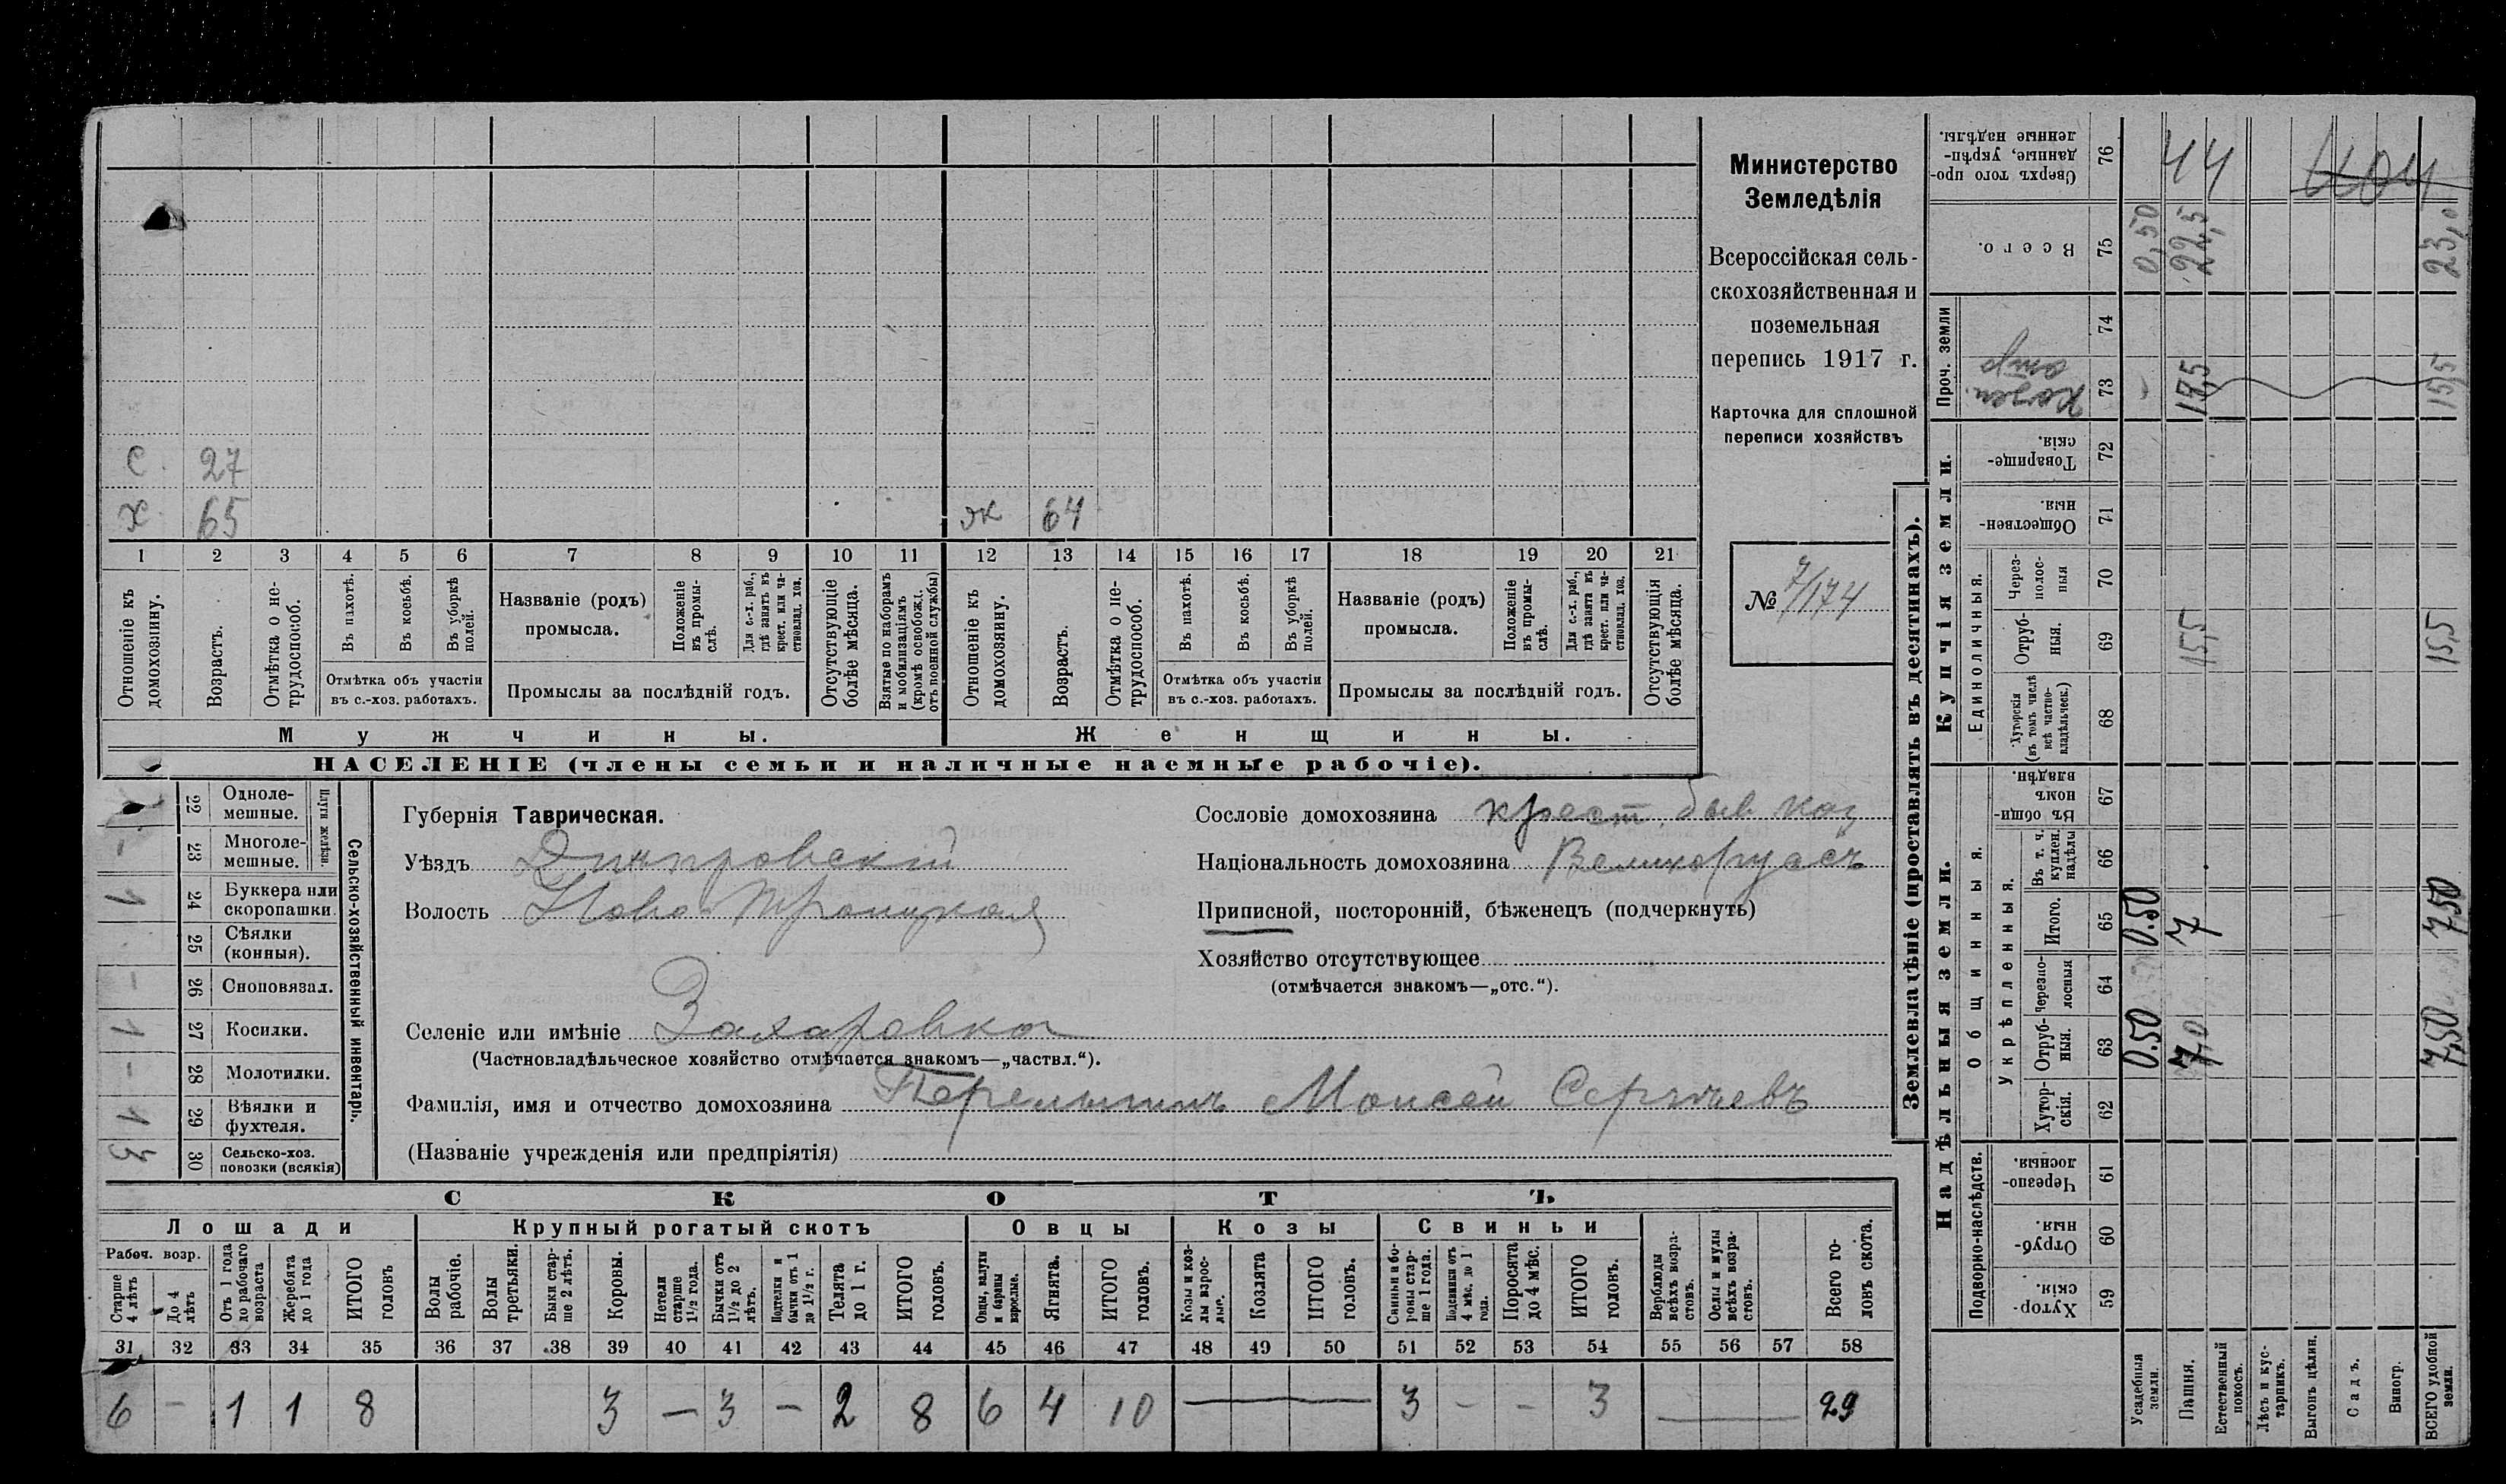 С. 27
Х. 65 ж 64
1 2 3 4 5 6 7 8 9 10 11 12 13 14 15 16 17 18 19 20 21
Отношеніе къ домохозяину.
Возрастъ.
Отмѣтка о не-трудоспособ.
Въ пахотѣ.
Въ косьбѣ.
Въ уборкѣ полей.
Отмѣтка объ участіи
въ с.-хоз. работахъ.
Названіе (родъ)
промысла.
Положеніе въ промы-слѣ.
Для с.-х. раб., гдѣ занятъ въ крест. или ча-стновлад. хоз.
Промыслы за послѣдній годъ.
Отсутствующіе болѣе мѣсяца.
Взятые по наборамъ и мобилизаціямъ (кромѣ освобожд. отъ военной службы)
Отношеніе къ домохозяину.
Возрастъ.
Отмѣтка о не-трудоспособ.
Въ пахотѣ.
Въ косьбѣ.
Въ уборкѣ полей.
Отмѣтка объ участіи
въ с.-хоз. работахъ.
Названіе (родъ)
промысла.
Положеніе въ промы-слѣ.
Для с.-х. раб., гдѣ занята въ крест. или ча-стновлад. хоз.
Промыслы за послѣдній годъ.
Отсутствующія болѣе мѣсяца.
Мужчины. Женщины.
НАСЕЛЕНІЕ (члены семьи и наличные наемные рабочіе).
Министерство
Земледѣлія
Всероссійская сель-
скохозяйственная и
поземельная
перепись 1917 г.
Карточка для сплошной
переписи хозяйствъ
№ 7/174
Сельско-хозяйственный инвентарь.
Плуги желѣзн.
22 Одноле-мешные.
- 23 Многоле-мешные.
1 24 Буккера или скоропашки.
25 Сѣялки (конныя).
- 26 Сноповязал.
1 27 Косилки.
- 28 Молотилки.
1 29 Вѣялки и фухтеля.
3 30 Сельско-хоз. повозки (всякія)
Губернія Таврическая.
Уѣздъ Днѣпровскій
Волость Ново-Троицкая
Селеніе или имѣніе Захаровка
(Частновладѣльческое хозяйство отмѣчается знакомъ—„частвл.“).
Фамилія, имя и отчество домохозяина Моисей Сергѣевъ
(Названіе учрежденія или предпріятія)
Сословіе домохозяина крест. быв каз
Національность домохозяина Великорусс
Приписной, посторонній, бѣженецъ (подчеркнуть)
Хозяйство отсутствующее
(отмѣчается знакомъ—„отс.“).
СКОТЪ
Лошади Крупный рогатый скотъ Овцы Козы Свиньи
Рабоч. возр.
Старше 4 лѣтъ
До 4 лѣтъ
Отъ 1 года до рабочаго возраста
Жеребята до 1 года
ИТОГО головъ
Волы рабочіе.
Волы третьяки.
Быки стар-ше 2 лѣтъ.
Коровы.
Нетели старше 1½ года.
Бычки отъ 1½ до 2 лѣтъ.
Подтелки и бычки отъ 1 до 1½ г.
Телята до 1 г.
ИТОГО головъ.
Овцы, валухи и бараны взрослые.
Ягнята.
ИТОГО головъ.
Козы и коз-лы взрос-лые.
Козлята
ИТОГО головъ.
Свиньи и бо-ровы стар-ше 1 года.
Подсвинки отъ 4 мѣс. до 1 года.
Поросята до 4 мѣс.
ИТОГО головъ.
Верблюды всѣхъ возра-стовъ.
Ослы и мулы всѣхъ возра-стовъ.
Всего го-ловъ скота.
31 32 33 34 35 36 37 38 39 40 41 42 43 44 45 46 47 48 49 50 51 52 53 54 55 56 57 58
6 - 1 1 8 3 — 3 — 2 8 6 4 10 — 3 - - 3 — 29
Землевладѣніе (проставлять въ десятинахъ).
Надѣльныя земли. Купчія земли. Проч. земли
Подворно-наслѣдств. Общинныя. Укрѣпленныя. Единоличныя.
59 Хутор-скія.
60 Отруб-ныя.
61 Черезпо-лосныя.
62 Хутор-скія.
63 Отруб-ныя. 0.50 7,0 7,50
64 Черезпо-лосныя
65 Итого. 0.50 7 7.50
66 Въ т. ч. куплен. надѣлы
67 Въ общин-номъ владѣн.
68 Хуторскія (въ томъ числѣ всѣ частно-владѣльческ.)
69 Отруб-ныя. 15,5 15,5
70 Через-полос-ныя
71 Обществен-ныя
72 Товарище-скія.
73 15,5
74
75 Всего. 0,50 22,5 23,0
76 Сверхъ того про-данные, укрѣп-ленные надѣлы. 44
Усадебныя земли.
Пашня.
Естественный покосъ.
Лѣсъ и кус-тарникъ.
Выгонъ цѣлин.
Садъ.
Виногр.
ВСЕГО удобной земли.